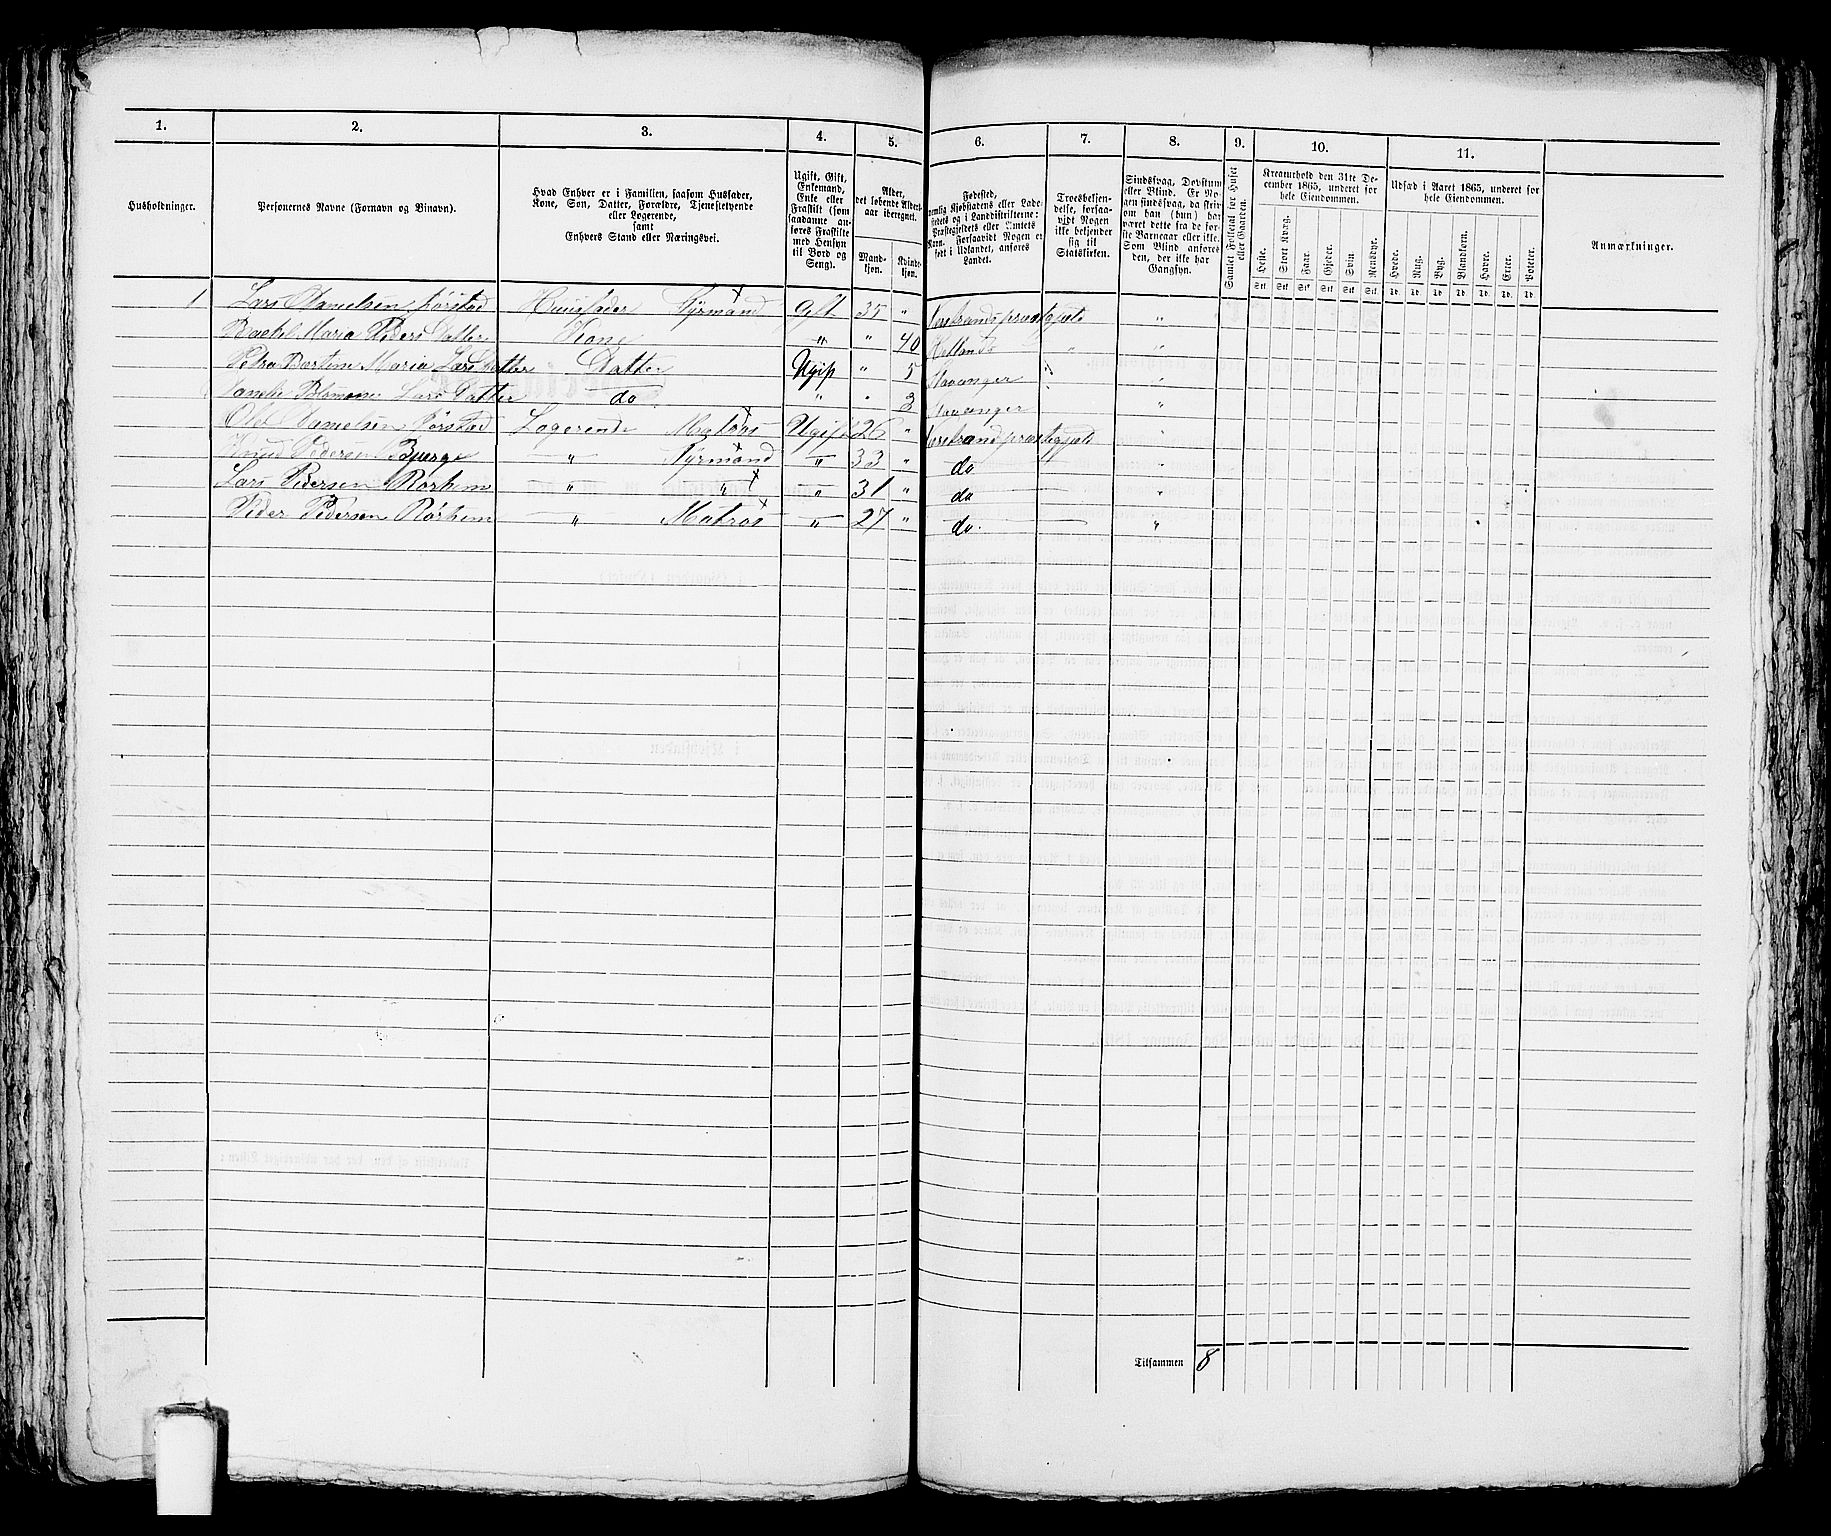 1. 2. 3. 4. 5. 6. 7. 8. 9. 10. 11.
Husholdninger.
Personernes Navne (Fornavn og Binavn).
Hvad Enhver er i Familien, saasom Husfader,
Kone, Søn, Datter, Forældre, Tjenestetyende
eller Logerende,
samt
Enhvers Stand eller Næringsvei.
Ugift, Gift,
Enkemand,
Enke eller
Fraskilt (som
saadanne an-
føres Fraskilte
med Hensyn
til Bord og
Seng).
Alder,
det løbende Alders-
aar iberegnet.
Mand-
kjøn.
Kvinde-
kjøn.
Fødested,
nemlig Kjøbstadens eller Lade-
stedets og i Landdistrikterne:
Præstegjeldets eller Sognets
Navn. Forsaavidt Nogen er
født i Udlandet, anføres
Landet.
Troesbekjen-
delse, forsaa-
vidt Nogen
ikke bekjender
sig til
Statskirken.
Sindssvag, Døvstum
eller Blind. Er No-
gen sindssvag, da skriv
om han (hun) har
været dette fra de før-
ste Barneaar eller ikke.
Som Blind anføres
den, der ikke har
Gangsyn.
Samlet Folketal for Huset
eller Gaarden.
Kreaturhold den 31te De-
cember 1865, underet for
hele Eiendommen.
Heste. Stort Kvæg. Faar. Gjeder. Svin. Rensdyr.
Stk. Stk. Stk. Stk. Stk. Stk.
Udsæd i Aaret 1865, underet for
hele Eiendommen.
Hvede. Rug. Byg. Blandkorn. Havre. Erter. Poteter.
Td. Td. Td. Td. Td. Td. Td.
Anmærkninger.
1 Lars Samelsen Jørstad Huusfader Styrmand Gift 35 " præstgjeld "
Rachel Maria Peders Datter Kone " " 40 Hetland " "
Petra Bertine Maria Lars Datter Datter Ugift " 5 Stavanger "
Lars Datter do " " 3 Stavanger "
Samelsen Jørstad Logerende Matros Ugift 26 " præstegjeld "
Knud Pedersen " Styrmand " 33 " do "
Lars Pedersen Rørhem " " " 31 " do "
Peder Pedersen Rørhem " Matros " 27 " do. "
Tilsammen 8